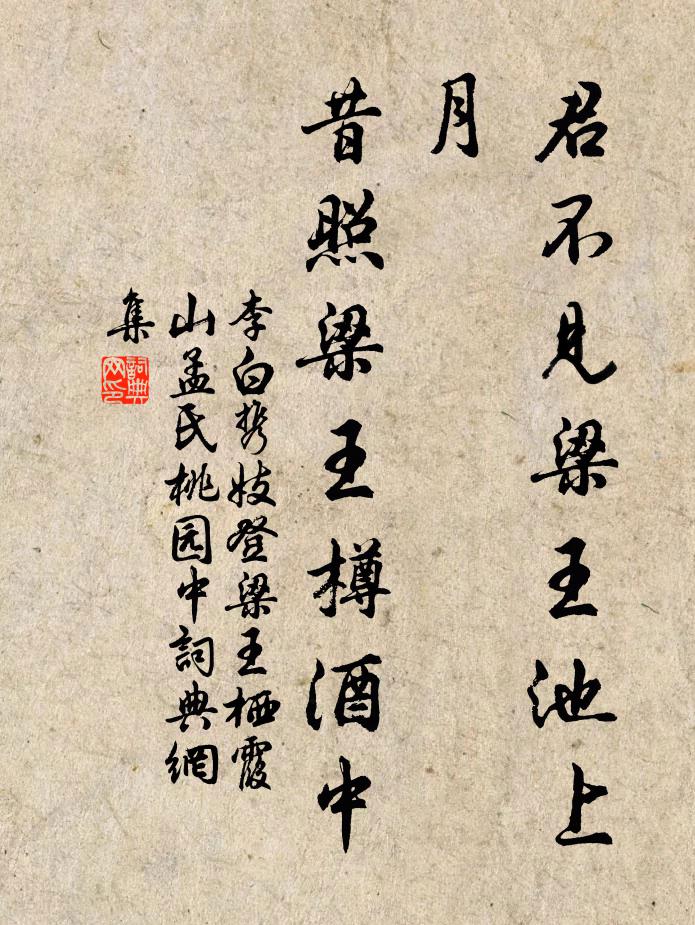 君不見梁王池上
月
昔照梁王樽酒中
李白携妓登梁王栖霞
山孟氏桃园中詞典網
集
詞典
网印